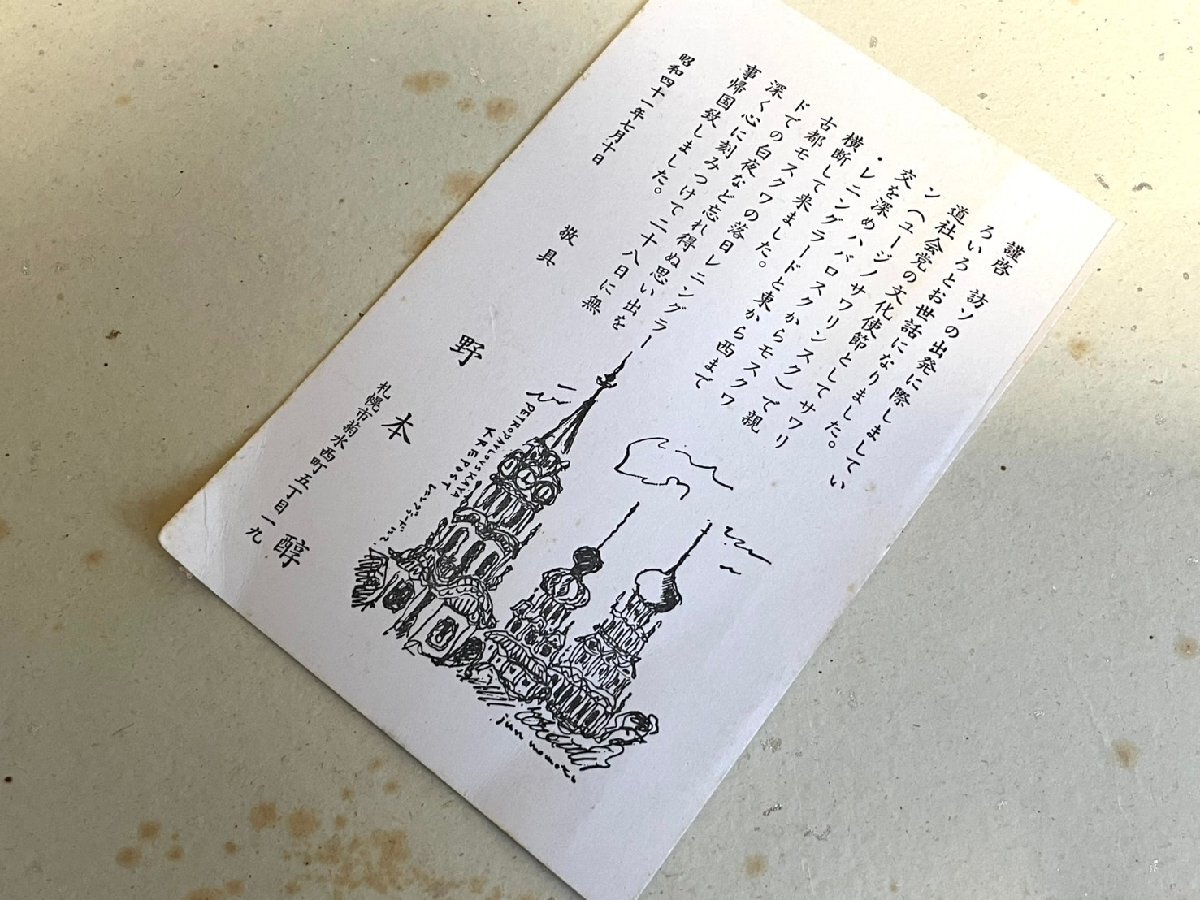 謹啓 訪ソの出発に際しましてい
ろいろとお世話になりました。
道社会党の文化使節としてサワリ
ン(ユージノサワリンスク)で親
交を深めハバロスクからモスクワ
・レニングラードと東から西まで
横断して来ました。
古都モスクワの落日レニングラー
ドでの白夜など忘れ得ぬ思い出を
深く心に刻みつけて二十八日に無
事帰国致しました。
敬具
昭和四十一年七月十日
野本 醇
札幌市菊水西町五丁目一九
PETROPAVLOVSKAYA
KREPOST
jun nomoto